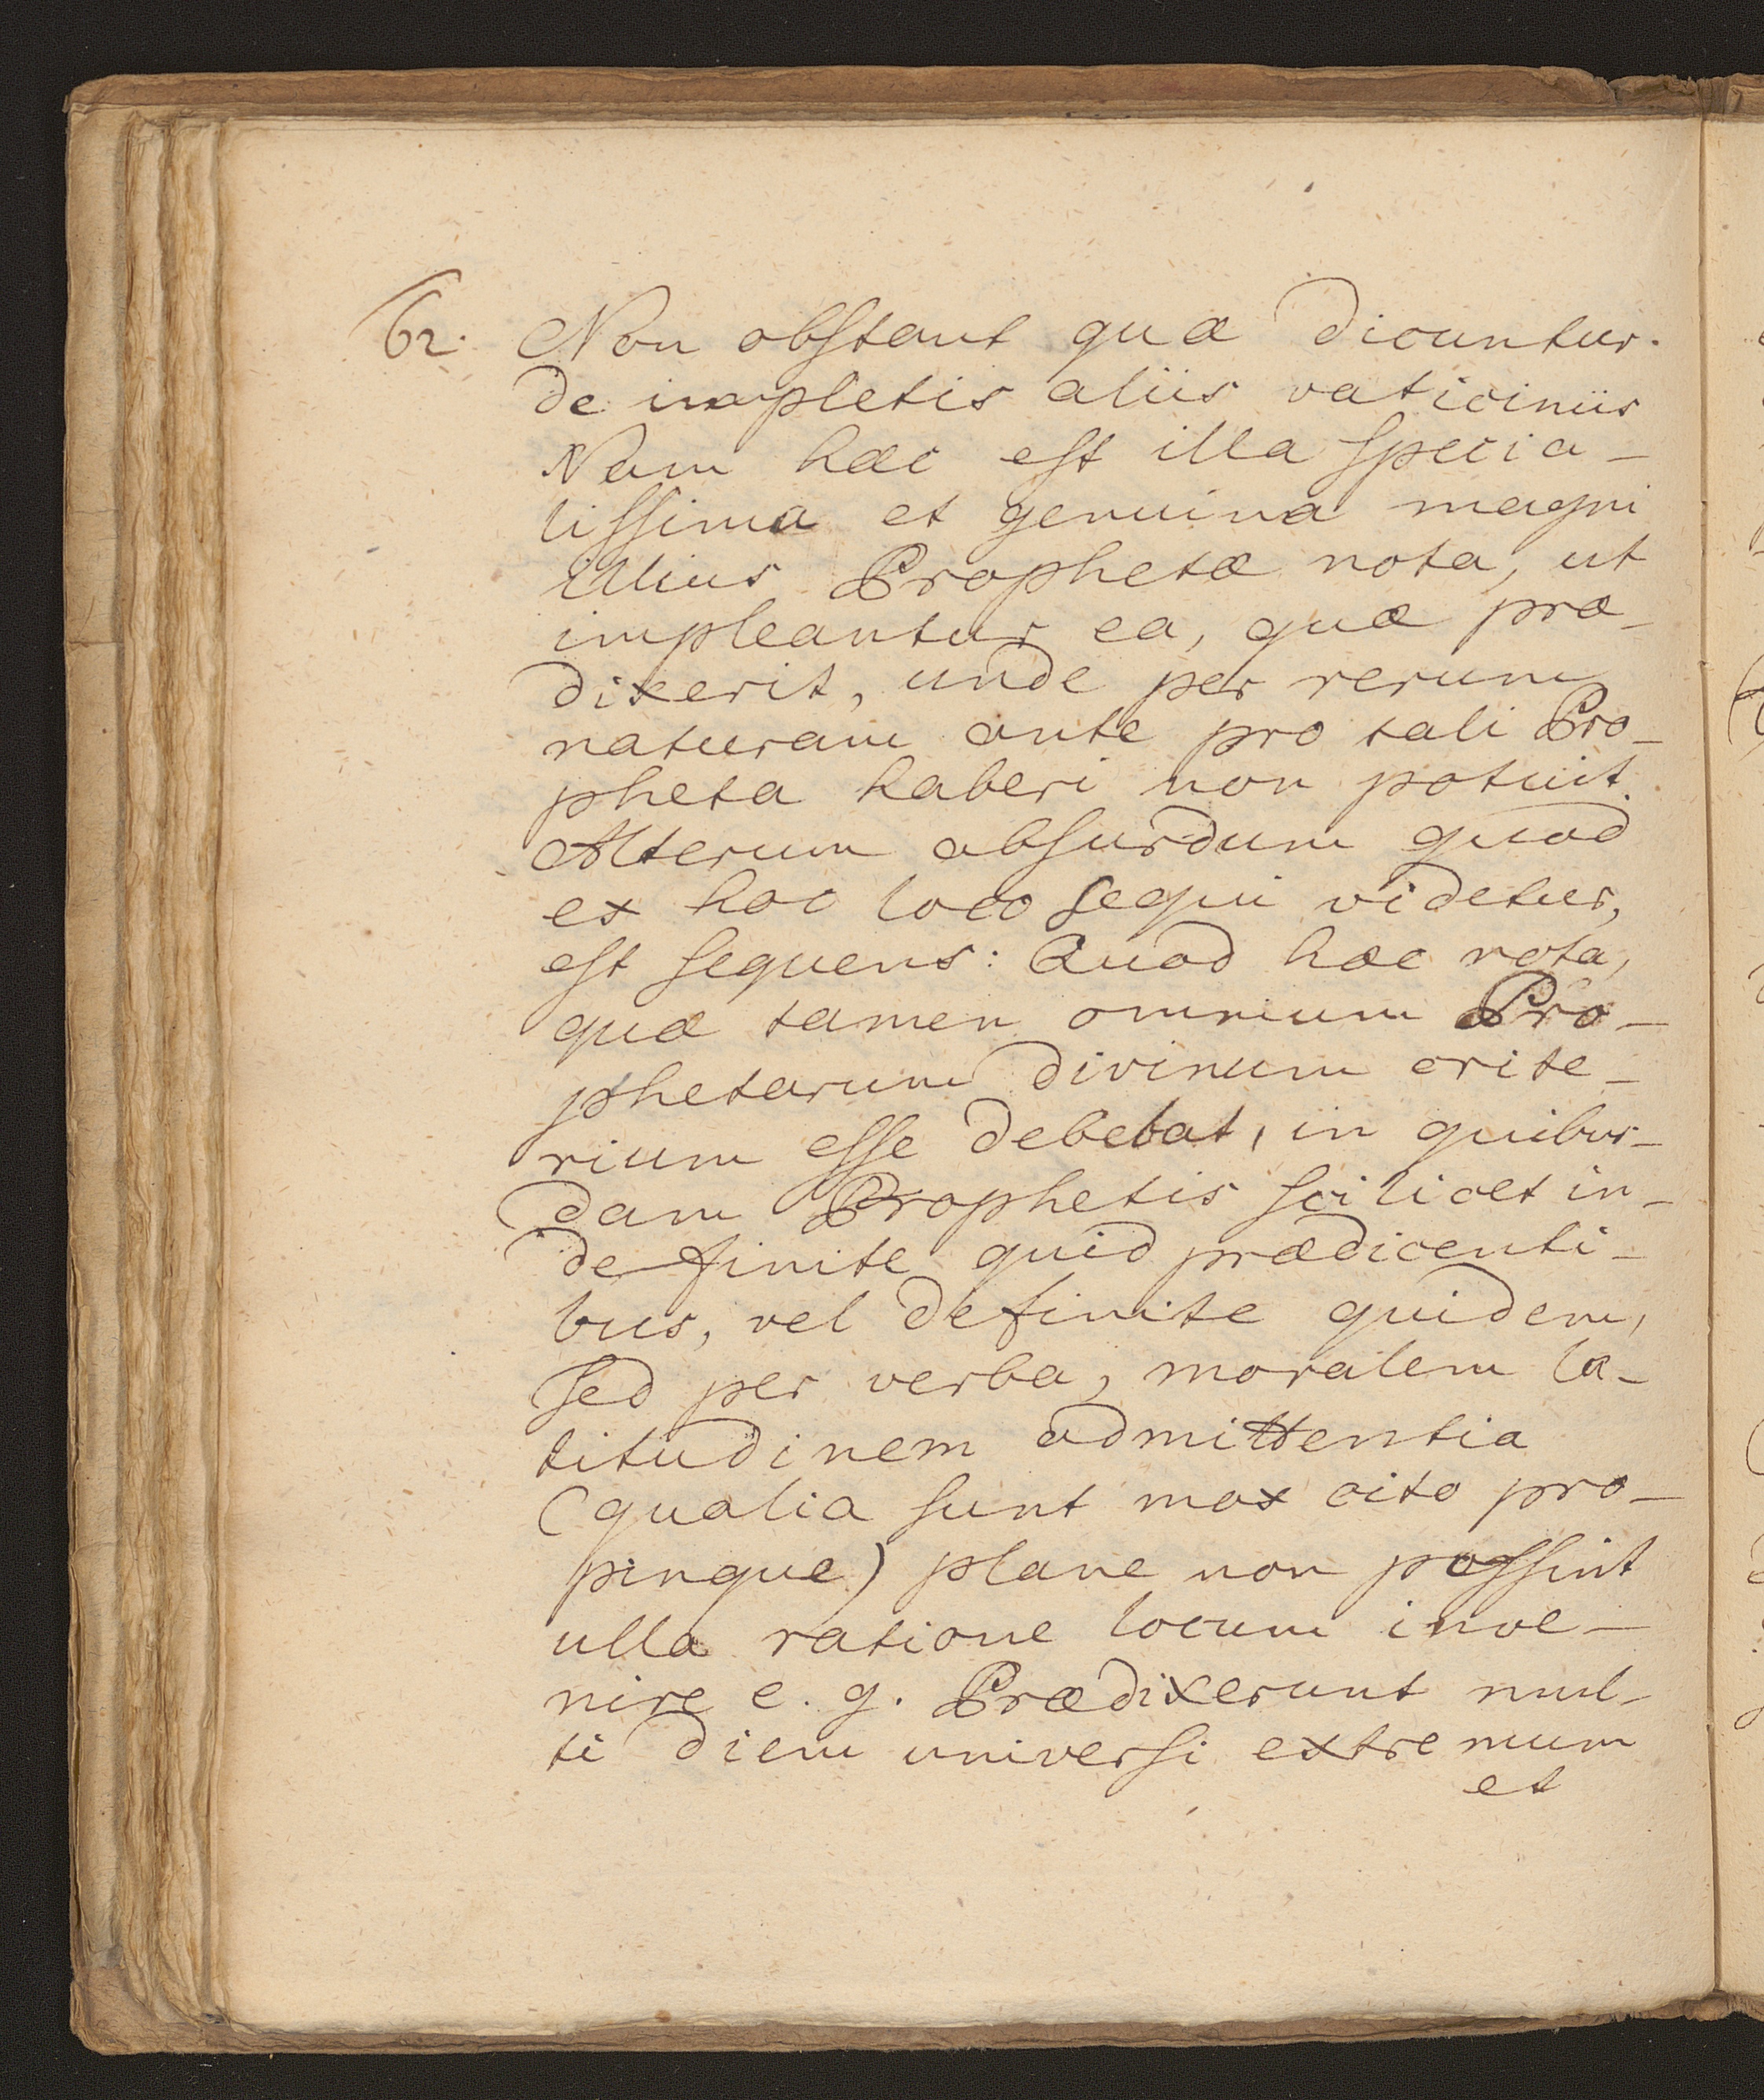 62. Non obſtant quæ dicuntur.
de impletis aliis vaticiniis
Nam hæc eſt illa ſpecia-
liſſima et genuina magni
illius Prophetæ nota, ut
impleantur ea, quæ præ-
dixerit, unde per rerum
naturam ante pro tali Pro-
pheta haberi non potuit.
Alterum abſurdum quod
ex hoc loco ſequi videtur,
eſt ſequens: Quod hæc nota,
quæ tamen omnium Pro-
phetarum divinum crite-
rium eſſe debebat, in quibus-
dam Prophetis ſcilicet in-
definite quid prædicenti-
bus, vel definite quidem,
ſed per verba, moralem la-
titudinem admittentia
(qualia ſunt mox cito pro-
pinque) plane non poſſint
ulla ratione locum inve-
nire e. g. Prædixerunt mul-
ti diem univerſi extremum
et